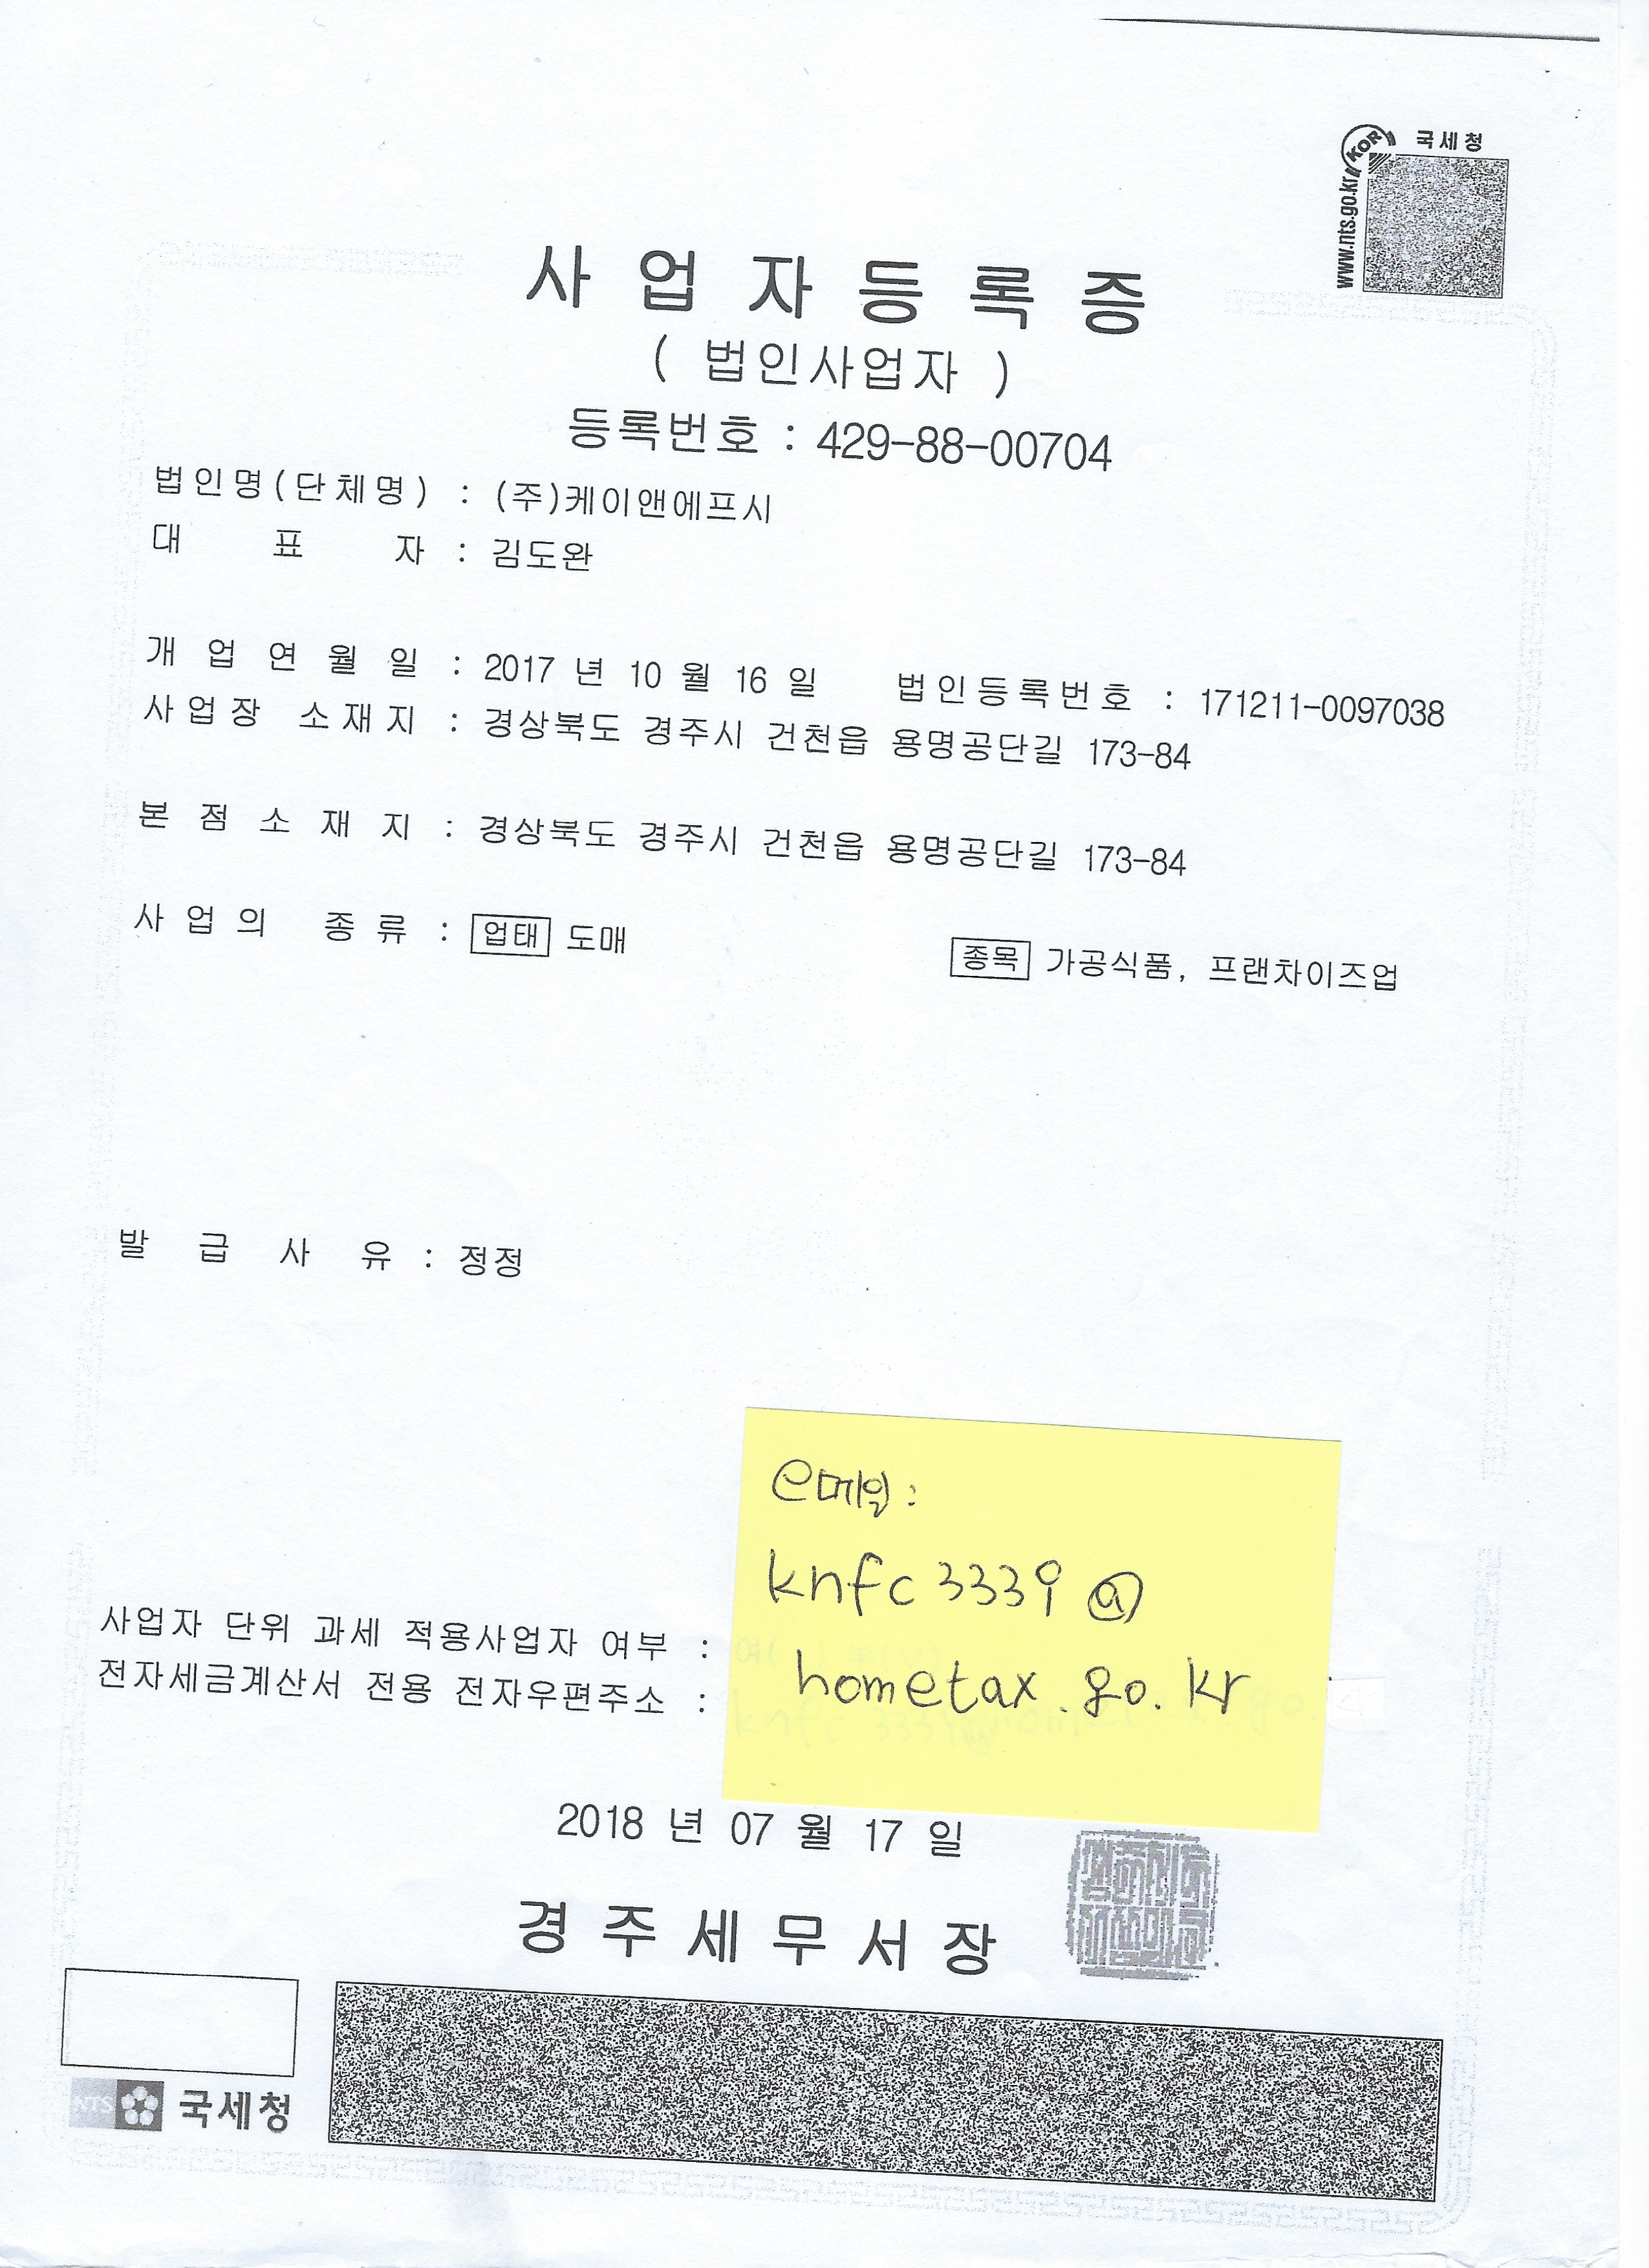 국세청
KOR
www.nts.go.kr
사업자등록증
( 법인사업자 )
등록번호 : 429-88-00704
법인명(단체명) : (주)케이앤에프시
대표자 : 김도완
개업연월일 : 2017 년 10 월 16 일 법인등록번호 : 171211-0097038
사업장 소재지 : 경상북도 경주시 건천읍 용명공단길 173-84
본점소재지 : 경상북도 경주시 건천읍 용명공단길 173-84
사업의 종류 : 업태 도매 종목 가공식품, 프랜차이즈업
발급사유 : 정정
e메일 :
knfc3339@
hometax.go.kr
사업자 단위 과세 적용사업자 여부 :
전자세금계산서 전용 전자우편주소 :
2018 년 07 월 17 일
경주세무서장
NTS 국세청